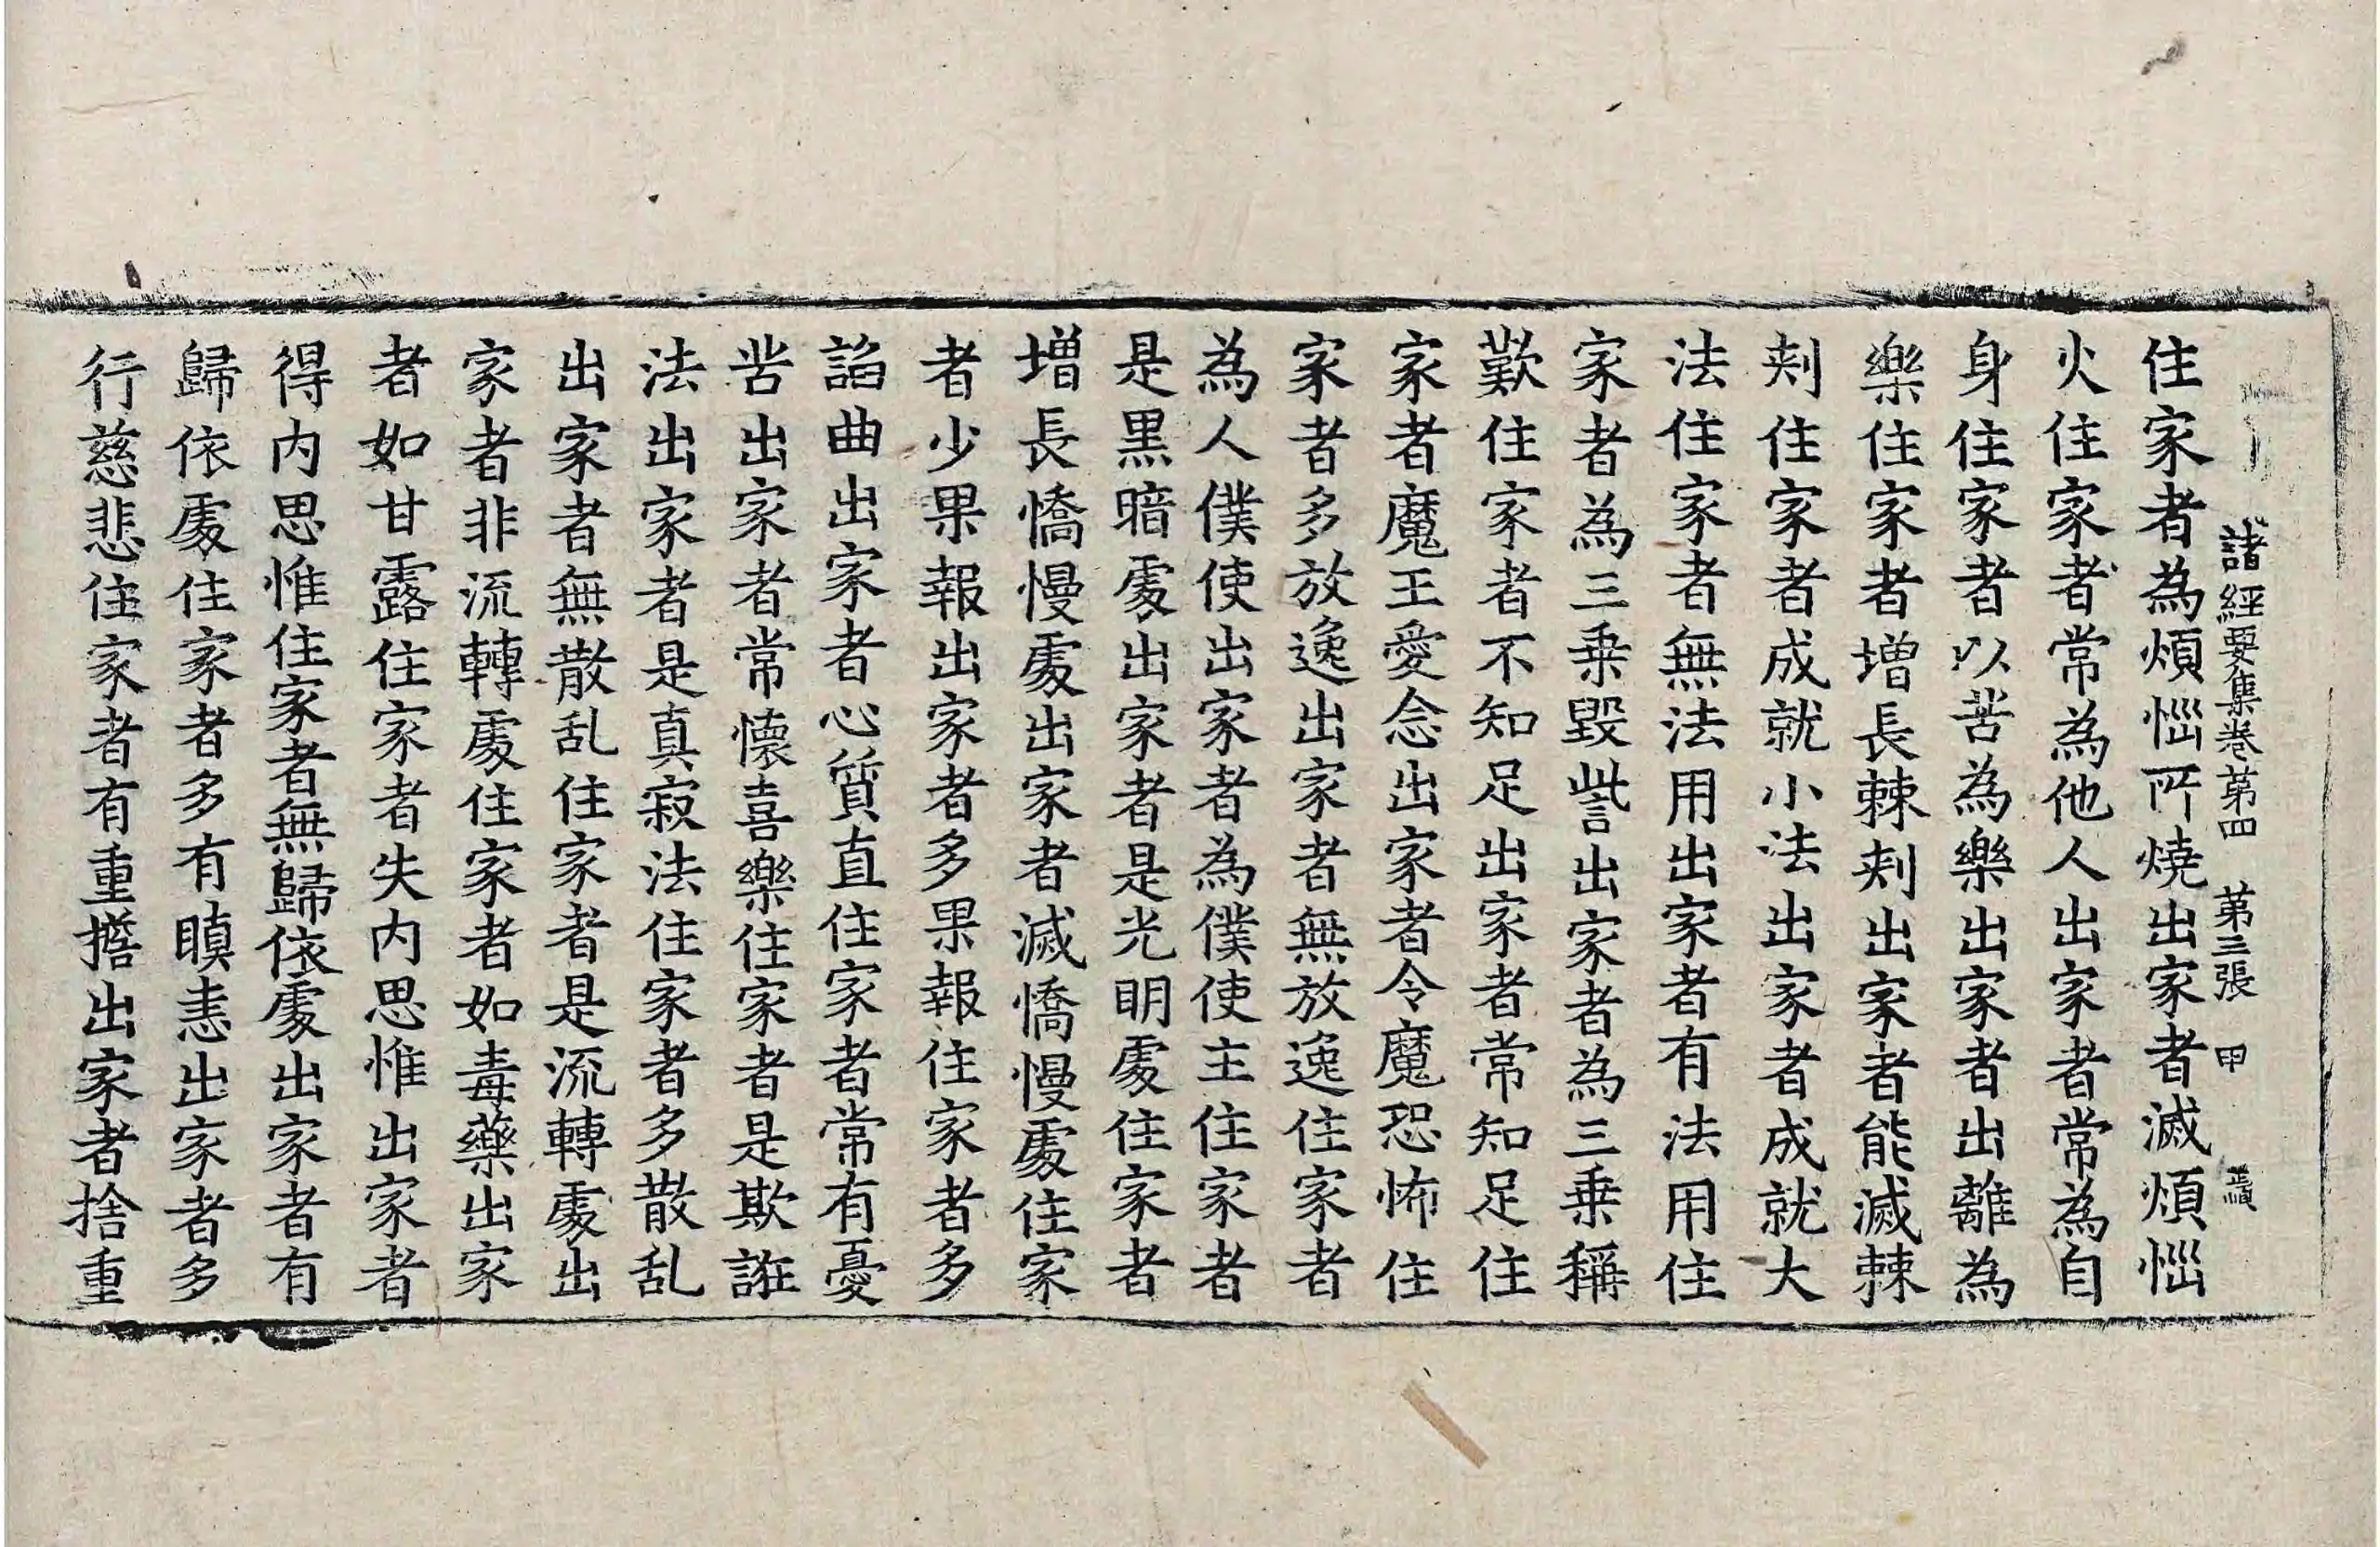 諸經要集卷第四 第三張 甲
住家者為煩惱所燒出家者滅煩惱
火住家者常為他人出家者常為自
身住家者以苦為樂出家者出離為
樂住家者增長棘刺出家者能滅棘
刺住家者成就小法出家者成就大
法住家者無法用出家者有法用住
家者為三乗毀訾出家者為三乗稱
歎住家者不知足出家者常知足住
家者魔王愛念出家者令魔恐怖住
家者多放逸出家者無放逸住家者
為人僕使出家者為僕使主住家者
是黒暗處出家者是光明處住家者
增長憍慢處出家者滅憍慢處住家
者少果報出家者多果報住家者多
諂曲出家者心質直住家者常有憂
苦出家者常懷喜樂住家者是欺誑
法出家者是真寂法住家者多散乱
出家者無散乱住家者是流轉處出
家者非流轉處住家者如毒藥出家
者如甘露住家者失内思惟出家者
得内思惟住家者無歸依處出家者有
歸依處住家者多有瞋恚出家者多
行慈悲住家者有重擔出家者捨重